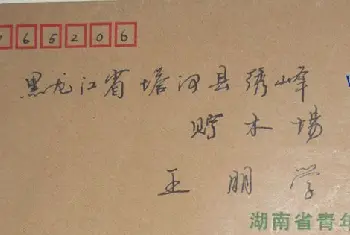 165206
黑龙江省塔河县绣峰
贮木場
王明学
湖南省青年